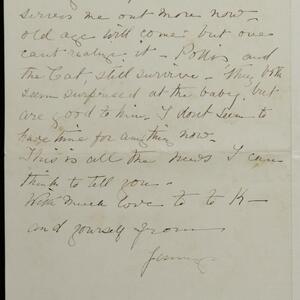 me out more now -
old age will come but one
cant realize it - Pollis and
the Cat, still survive - They both
seem surprised at the baby, but
are good to him. I dont seem to
have time for anything now.
This is all the news I can
think to tell you.
With much love to K -
and yourself from